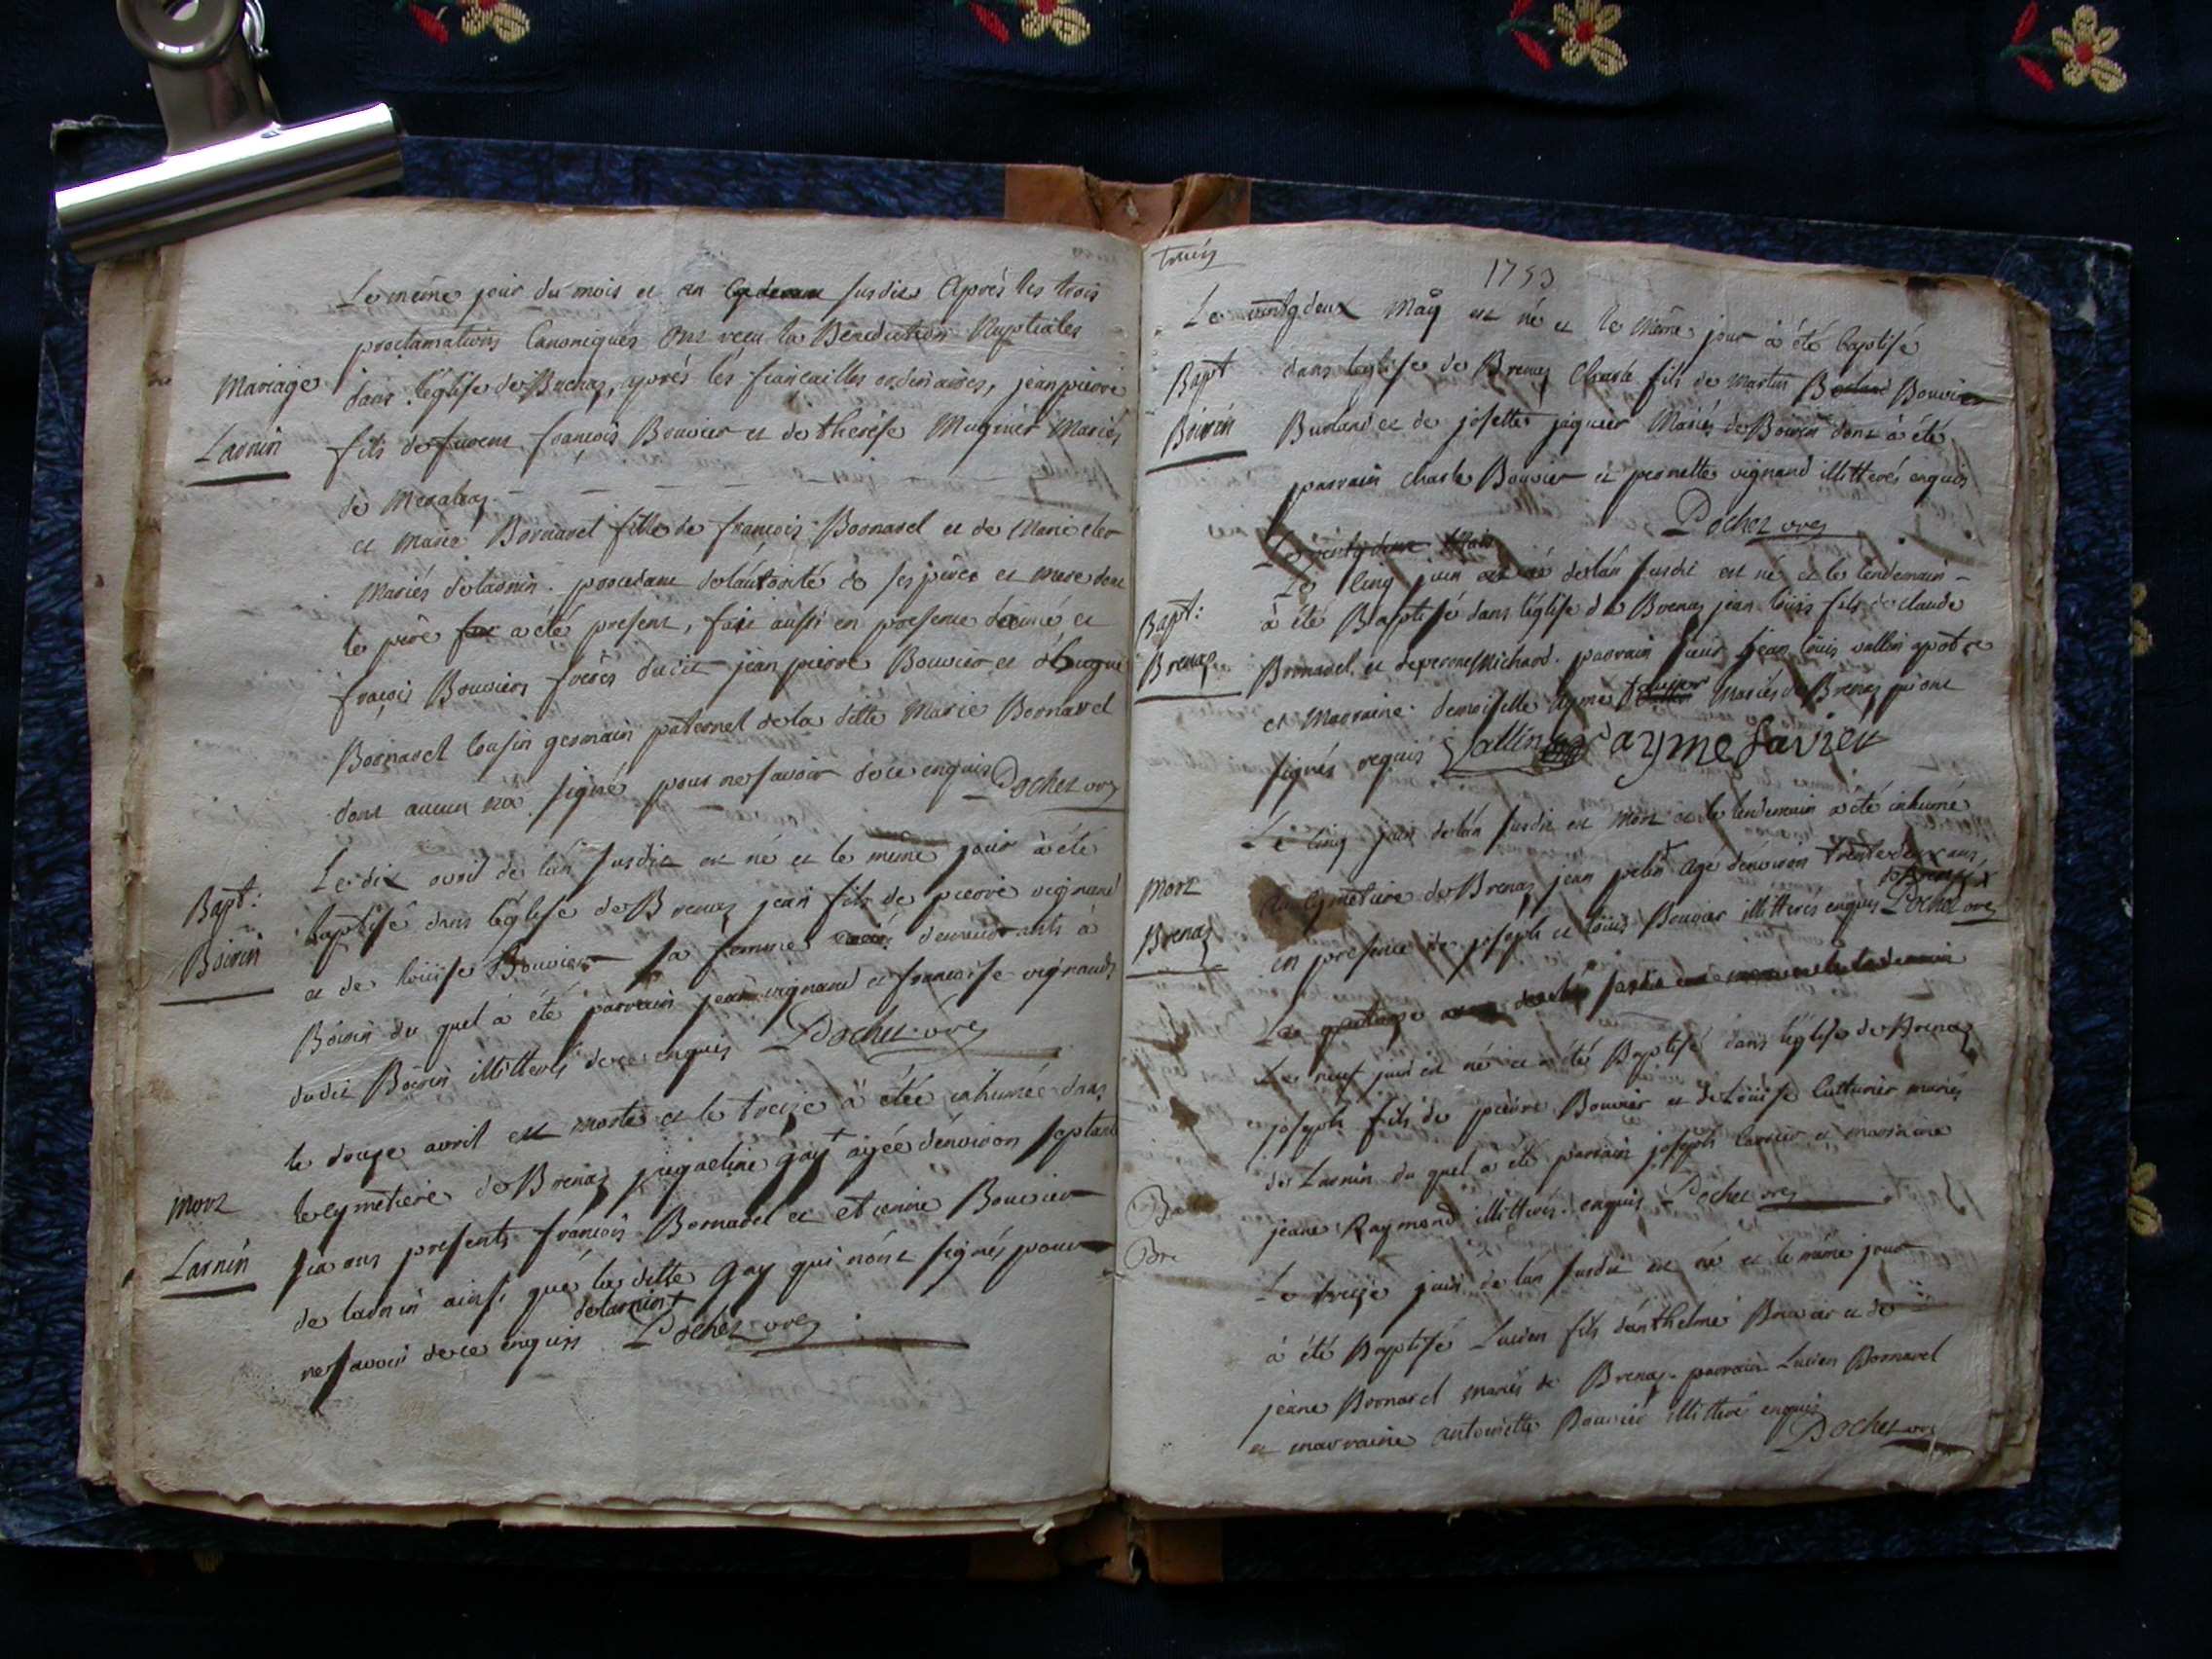 Le même jour du mois et an susdits Après les trois
proclamations Canoniques ont reçu la Bénédiction Nuptiales
Mariage
dans l'église de Brenaz, après les fiançailles ordinaires, jean pierre
Larnin
fils de françois Bouvier et de therése Mugnier Mariés
de
et marie Bornarel fille de francois Bornarel et de Marie
Mariés de larnin. procedant de láutorité de ses père et mere dont
le père a été present, fait aussi en presence et
fraçois Bouviers frères dudit jean pierre Bouvier et
Bornarel Cousin germain paternel de la ditte Marie Bornarel
dont aucun na signé pour ne savoir de ce enquis Pochet
Le dix avril de lan susdit est né et le meme jour à été
Bapt:
baptisé dans léglise de Brenaz jean fils de pierre vignand
Boirin
et de loüise Bouvier sa femme à
Boirin du quel a été parrain jean vignand et francoise vignand
dudit Boirin illitterés de ce enquis Pochet
le douze avril est morte et le treize à étée inhumée dans
Mort
le cymetiere de Brenaz jaqueline gay agée dénviron
Larnin
presents francois Bornarel et etienne Bouvier
de larnin ainsi que la ditte gay qui nónt signés pour
de larnin
ne savoir de ce enquis Pochet
1753
Le vintg deux Maÿ est né et le même jour à été baptisé
Bapt
dans léglise de Brenaz Charle fils de Martin Bouvier
Boirin
Burland et de josette jaquier Mariés de Boirin dont à été
parrain charle Bouvier et pernette vignand illitterés enquis
Pochet
Le vintg deux
Le Cinq juin de lán susdit est né et le lendemain
Bapt:
à été Baptisé dans léglise de Brenaz jean loüis fils de claude
Brenaz
Bornarel et de perne Michard. parrain sieur jean loüis vallin
et Marraine demoiselle Ayme Mariés de Brenaz qui ont
signés requis Vallin ayme favier
Le Cinq juin de lán susdit est Mort et le lendemain a été inhumé
Mort
cymetiere de Brenaz jean agé dénviron trente deux ans
de Brenaz
Brenaz
en presence de joseph et loüis Bouvier illitterés enquis Pochet
Le quatorze
Le neuf juin est né et a été Baptisé dans léglise de Brenaz
joseph fils de pierre Bouvier et de Loüise Cutturier mariés
de Larnin du quel a été parrain joseph et marraine
jeane Raymond illitterés enquis Pochet
Le treize juin de lan susdit est né et le même jour
à été Baptisé Lucien fils dánthelme Bouvier et de
jeane Bornarel mariés de Brenaz parrain Lucien Bornarel
et marraine antoinette Bouvier illitterés enquis
Pochet